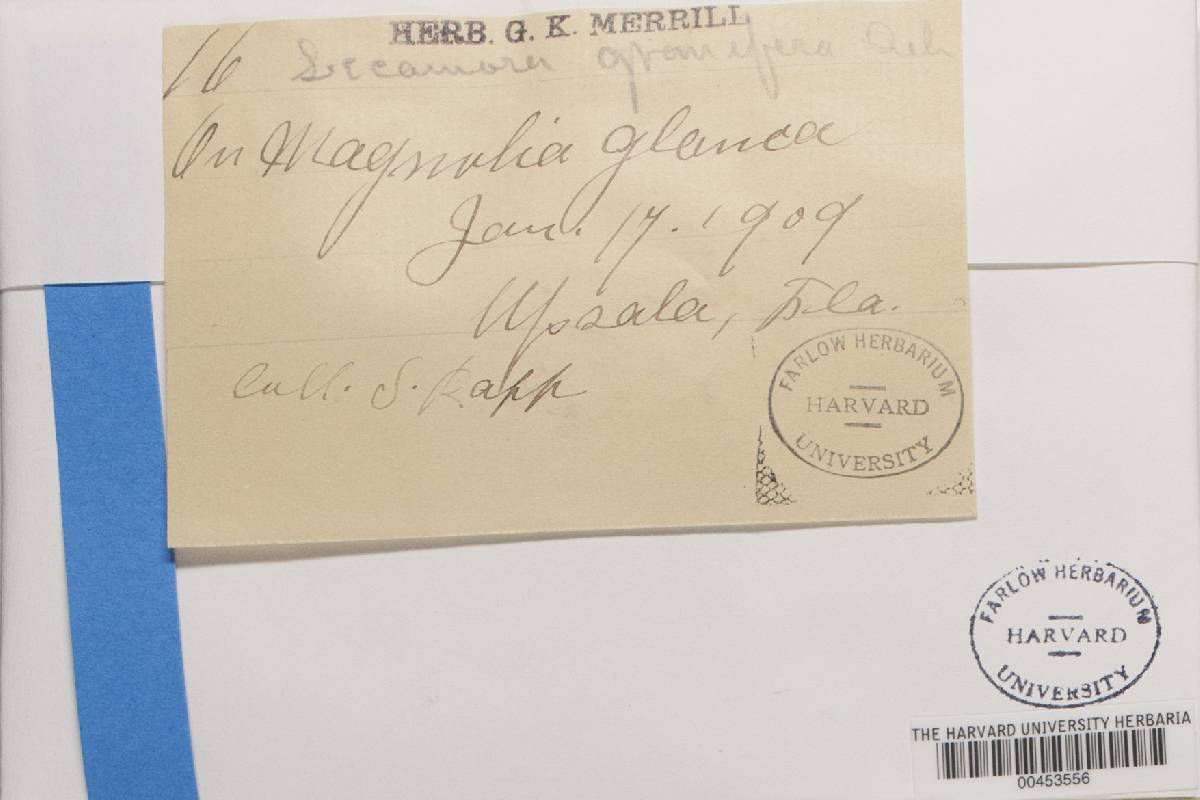 HERB. G. K. MERRILL
16 Lecanora granifera Ach
On Magnolia glauca
Jan. 17. 1909
Upsala, Fla.
Coll. S. Rapp
FARLOW HERBARIUM
HARVARD
UNIVERSITY
FARLOW HERBARIUM
HARVARD
UNIVERSITY
THE HARVARD UNIVERSITY HERBARIA
00453556